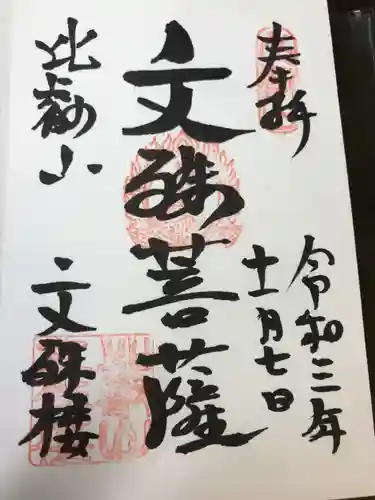 奉拝
令和三年
十一月七日
文殊菩薩
比叡山
文殊楼